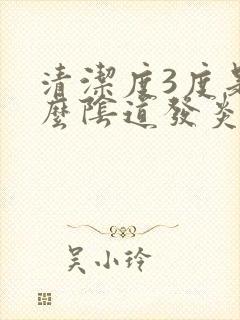 清潔度3度是
麼陰道發炎
吳小玲